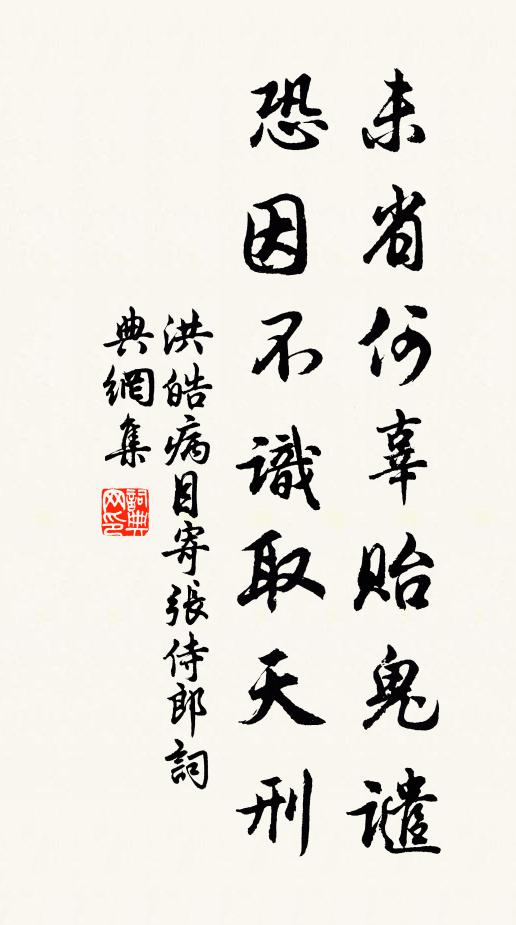 未省何辜貽鬼譴
恐因不識取天刑
洪皓病目寄張侍郎詞
典網集
詞典網印